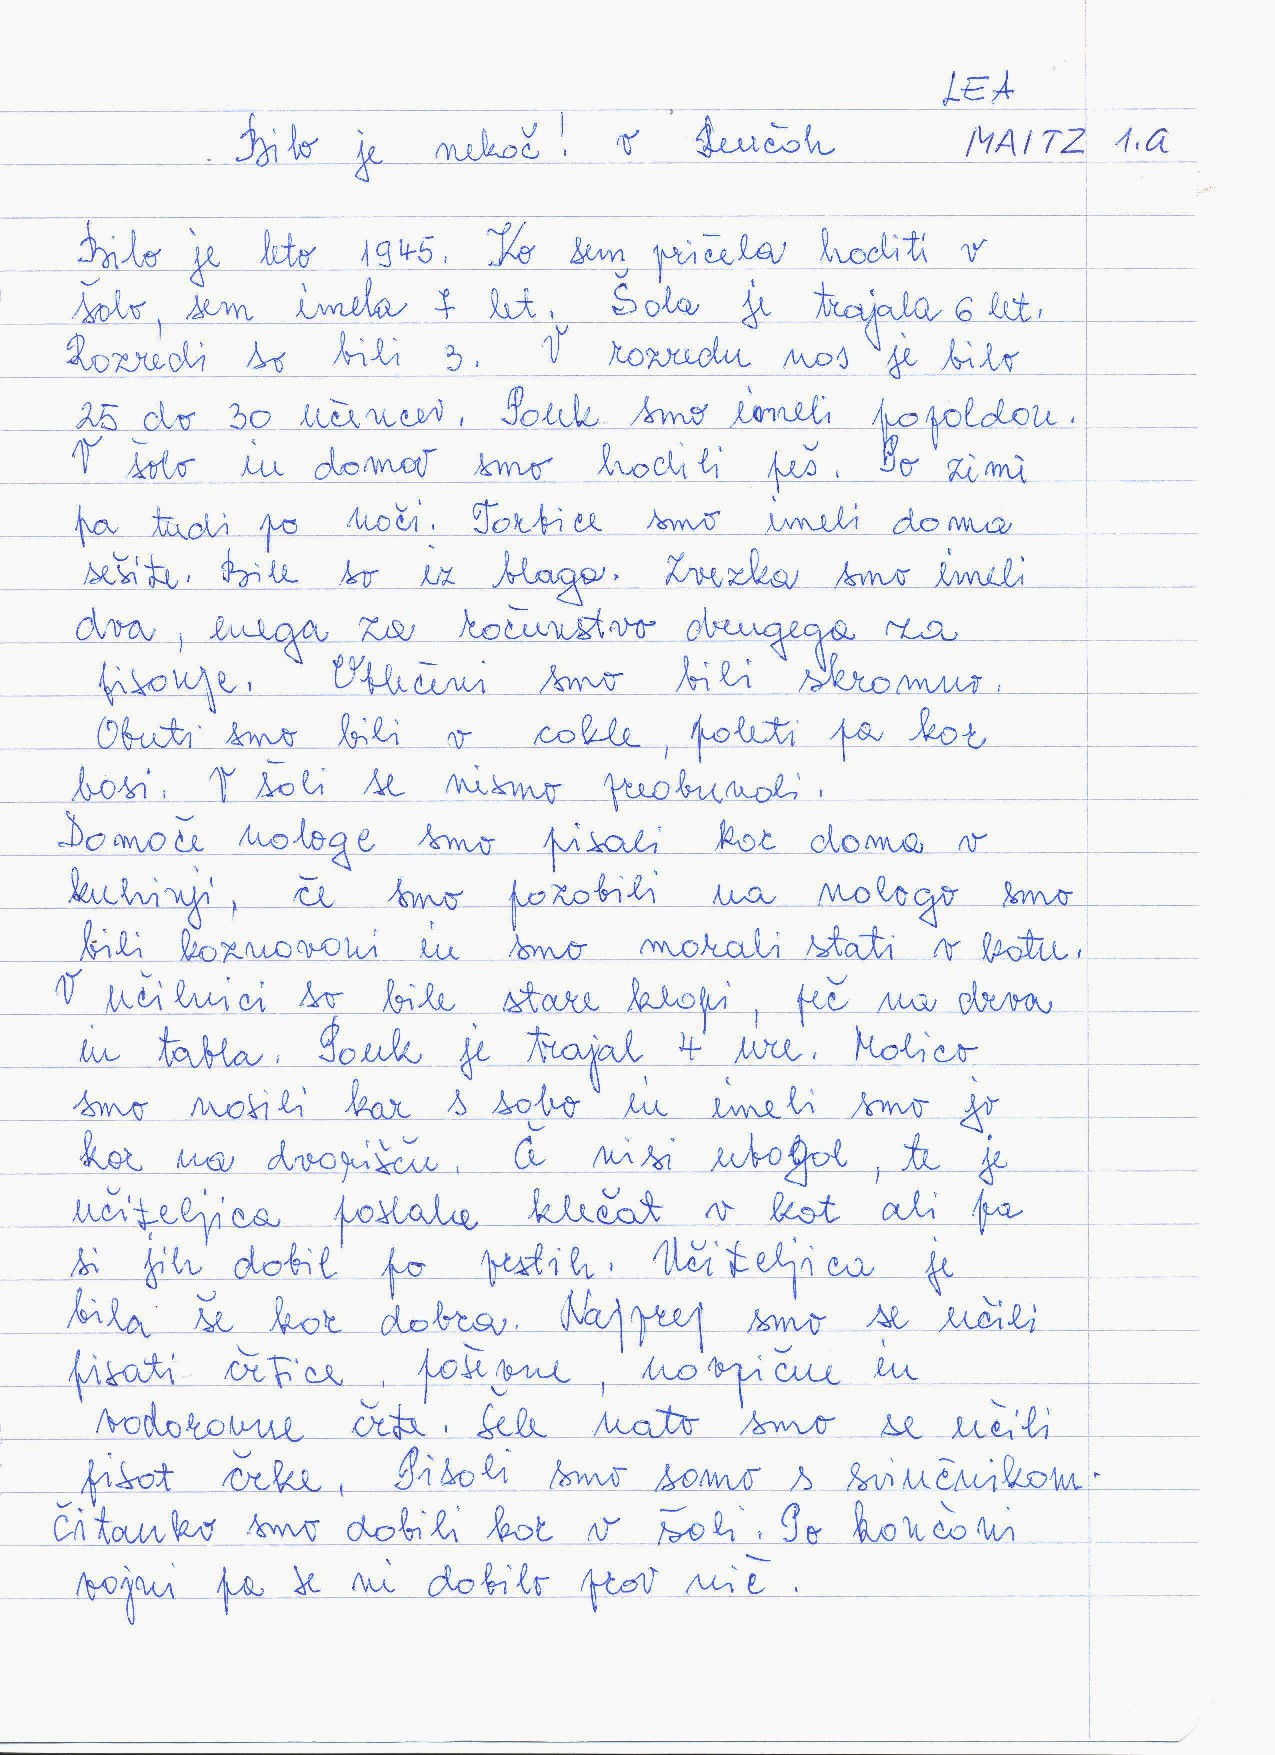 LEA
Bilo je nekoč! v Lučah MAITZ 1.a
Bilo je leto 1945. Ko sem pričela hoditi v
šolo, sem imela 7 let. Šola je trajala 6 let.
Razredi so bili 3. V razredu nas je bilo
25 do 30 učencev. Pouk smo imeli popoldan.
V šolo in domov smo hodili peš. Po zimi
pa tudi po noči. Torbice smo imeli doma
sešite. Bile so iz blaga. Zvezka smo imeli
dva, enega za računstvo drugega za
pisanje. Oblečeni smo bili skromno.
Obuti smo bili v cokle, poleti pa kar
bosi. V šoli se nismo preobuvali.
Domače naloge smo pisali kar doma v
kuhinji, če smo pozabili na nalogo smo
bili kaznovani in smo morali stati v kotu.
V učilnici so bile stare klopi, peč na drva
in tabla. Pouk je trajal 4 ure. Malico
smo nosili kar s sabo in imeli smo jo
kar na dvorišču. Če nisi ubogal, te je
učiteljica poslala klečat v kot ali pa
si jih dobil po prstih. Učiteljica je
bila še kar dobra. Najprej smo se učili
pisati črtice, poševne, navpične in
vodoravne črte. Šele nato smo se učili
pisat črke. Pisali smo samo s svinčnikom.
Čitanko smo dobili kar v šoli. Po končani
vojni pa se ni dobilo prav nič.